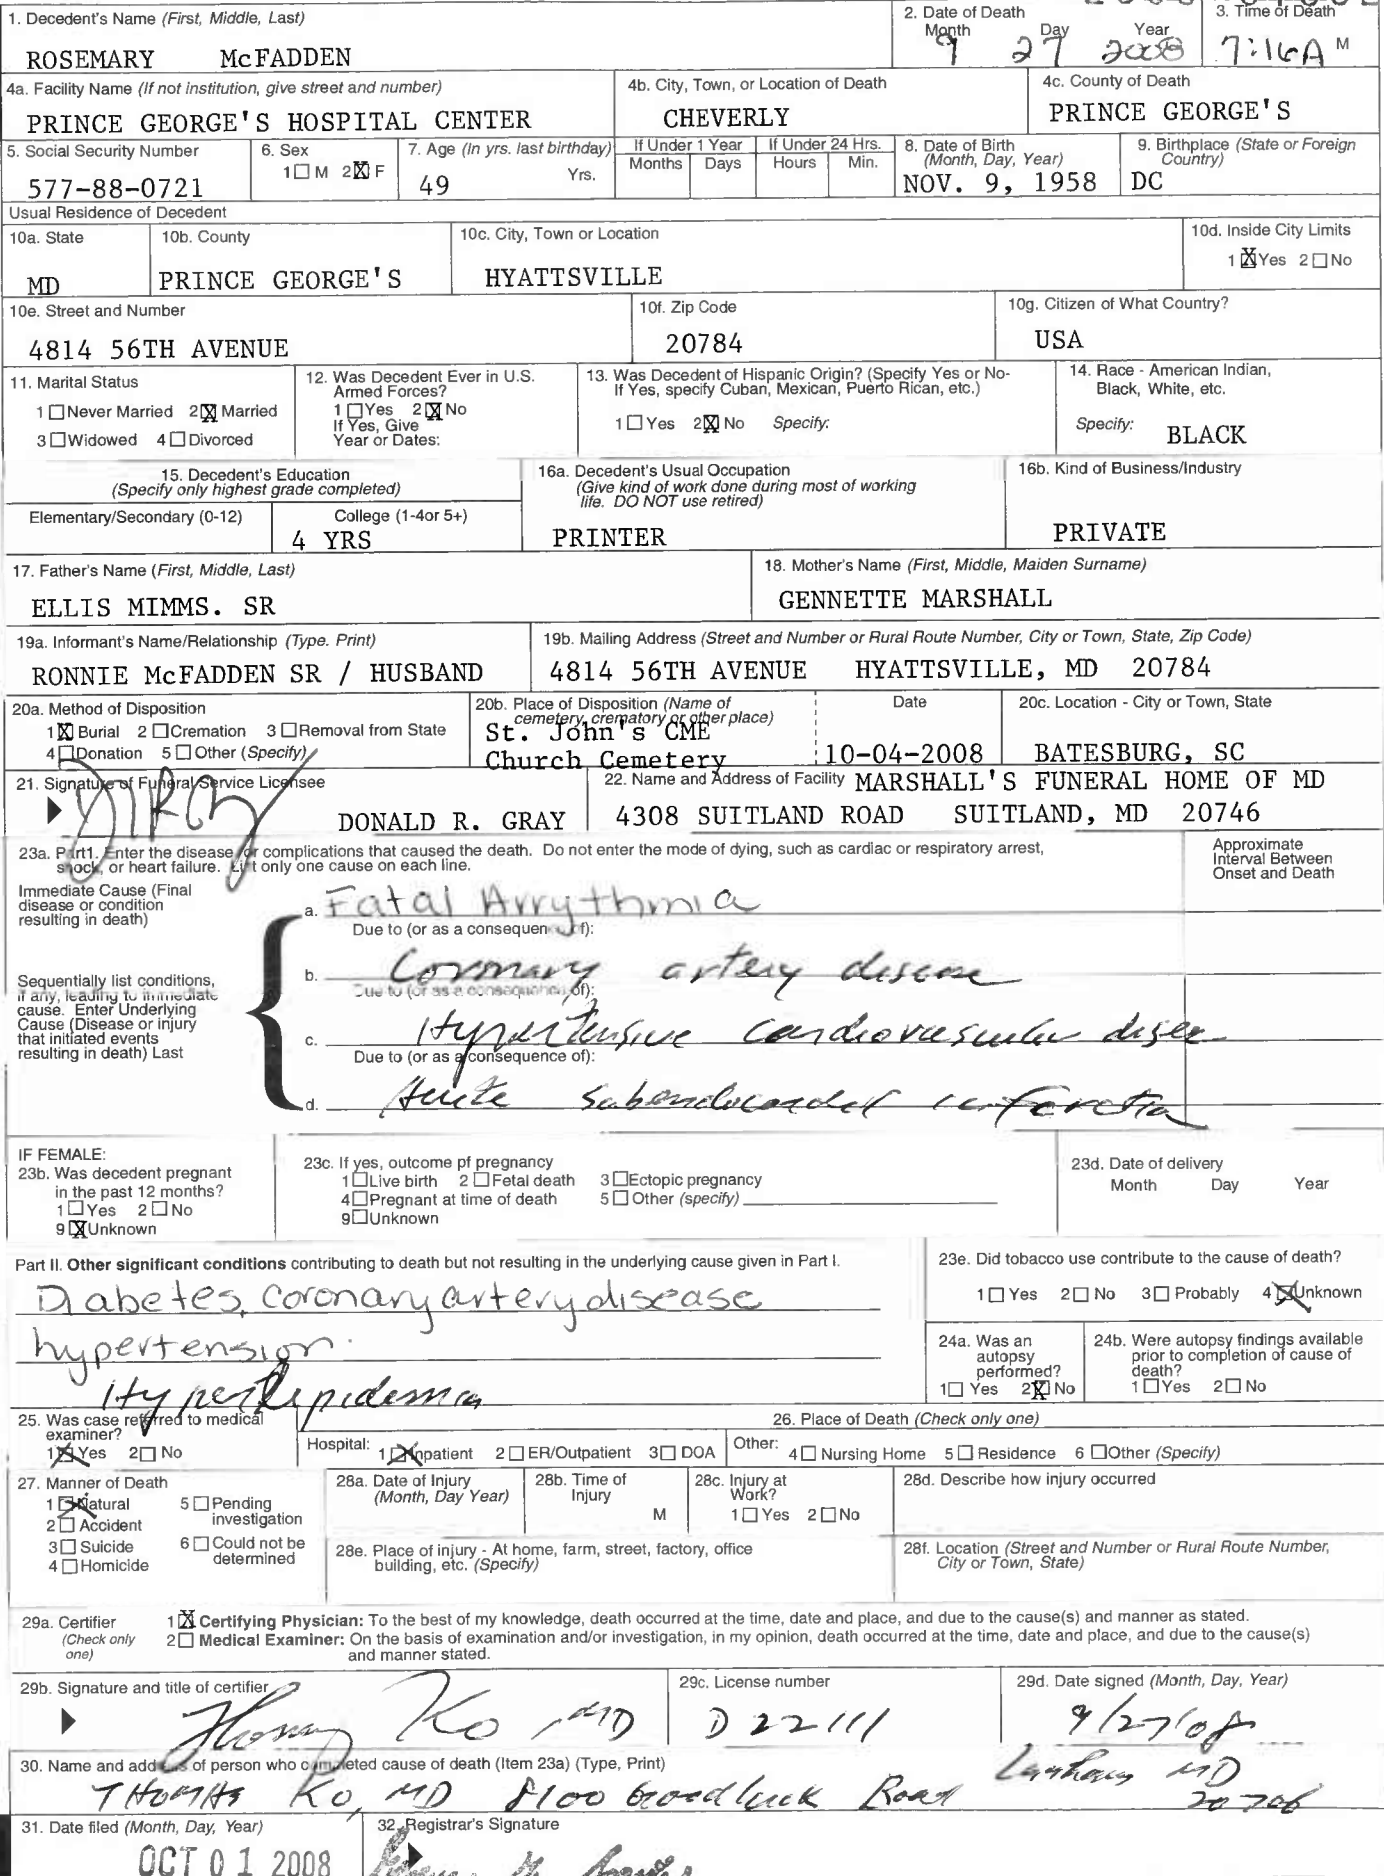 1. Decedent's Name (First, Middle, Last)
ROSEMARY McFADDEN
2. Date of Death
Month Day Year
9 27 2008
3. Time of Death
7:16A M
4a. Facility Name (If not institution, give street and number)
PRINCE GEORGE'S HOSPITAL CENTER
4b. City, Town, or Location of Death
CHEVERLY
4c. County of Death
PRINCE GEORGE'S
5. Social Security Number
577-88-0721
6. Sex
1☐ M 2☒ F
7. Age (In yrs. last birthday)
49 Yrs.
If Under 1 Year
Months Days
If Under 24 Hrs.
Hours Min.
8. Date of Birth
(Month, Day, Year)
NOV. 9, 1958
9. Birthplace (State or Foreign
Country)
DC
Usual Residence of Decedent
10a. State
MD
10b. County
PRINCE GEORGE'S
10c. City, Town or Location
HYATTSVILLE
10d. Inside City Limits
1 ☒ Yes 2 ☐ No
10e. Street and Number
4814 56TH AVENUE
10f. Zip Code
20784
10g. Citizen of What Country?
USA
11. Marital Status
1 ☐ Never Married 2 ☒ Married
3 ☐ Widowed 4 ☐ Divorced
12. Was Decedent Ever in U.S.
Armed Forces?
1 ☐ Yes 2 ☒ No
If Yes, Give
Year or Dates:
13. Was Decedent of Hispanic Origin? (Specify Yes or No-
If Yes, specify Cuban, Mexican, Puerto Rican, etc.)
1 ☐ Yes 2 ☒ No Specify:
14. Race - American Indian,
Black, White, etc.
Specify: BLACK
15. Decedent's Education
(Specify only highest grade completed)
Elementary/Secondary (0-12)
College (1-4or 5+)
4 YRS
16a. Decedent's Usual Occupation
(Give kind of work done during most of working
life. DO NOT use retired)
PRINTER
16b. Kind of Business/Industry
PRIVATE
17. Father's Name (First, Middle, Last)
ELLIS MIMMS. SR
18. Mother's Name (First, Middle, Maiden Surname)
GENNETTE MARSHALL
19a. Informant's Name/Relationship (Type. Print)
RONNIE McFADDEN SR / HUSBAND
19b. Mailing Address (Street and Number or Rural Route Number, City or Town, State, Zip Code)
4814 56TH AVENUE HYATTSVILLE, MD 20784
20a. Method of Disposition
1 ☒ Burial 2 ☐ Cremation 3 ☐ Removal from State
4 ☐ Donation 5 ☐ Other (Specify)
20b. Place of Disposition (Name of
cemetery, crematory or other place)
St. John's CME
Church Cemetery
Date
10-04-2008
20c. Location - City or Town, State
BATESBURG, SC
21. Signature of Funeral Service Licensee
DONALD R. GRAY
22. Name and Address of Facility MARSHALL'S FUNERAL HOME OF MD
4308 SUITLAND ROAD SUITLAND, MD 20746
23a. Part1. Enter the disease or complications that caused the death. Do not enter the mode of dying, such as cardiac or respiratory arrest,
shock, or heart failure. List only one cause on each line.
Approximate
Interval Between
Onset and Death
Immediate Cause (Final
disease or condition
resulting in death)
a. Fatal Arrythmia
Due to (or as a consequence of):
b. Coronary artery disease
Due to (or as a consequence of):
Sequentially list conditions,
if any, leading to immediate
cause. Enter Underlying
Cause (Disease or injury
that initiated events
resulting in death) Last
c. Hypertensive cardiovascular disease
Due to (or as a consequence of):
d. Acute subendocardial infarction
IF FEMALE:
23b. Was decedent pregnant
in the past 12 months?
1 ☐ Yes 2 ☐ No
9 ☒ Unknown
23c. If yes, outcome pf pregnancy
1 ☐ Live birth 2 ☐ Fetal death 3 ☐ Ectopic pregnancy
4 ☐ Pregnant at time of death 5 ☐ Other (specify)
9 ☐ Unknown
23d. Date of delivery
Month Day Year
Part II. Other significant conditions contributing to death but not resulting in the underlying cause given in Part I.
Diabetes, coronary artery disease
hypertension.
Hyperlipidemia
23e. Did tobacco use contribute to the cause of death?
1 ☐ Yes 2 ☐ No 3 ☐ Probably 4 ☒ Unknown
24a. Was an
autopsy
performed?
1☐ Yes 2☒ No
24b. Were autopsy findings available
prior to completion of cause of
death?
1 ☐ Yes 2 ☐ No
25. Was case referred to medical
examiner?
1☒ Yes 2☐ No
26. Place of Death (Check only one)
Hospital: 1 ☒ Inpatient 2 ☐ ER/Outpatient 3 ☐ DOA
Other: 4 ☐ Nursing Home 5 ☐ Residence 6 ☐ Other (Specify)
27. Manner of Death
1 ☒ Natural 5 ☐ Pending
investigation
2 ☐ Accident
3 ☐ Suicide 6 ☐ Could not be
determined
4 ☐ Homicide
28a. Date of Injury
(Month, Day Year)
28b. Time of
Injury
M
28c. Injury at
Work?
1 ☐ Yes 2 ☐ No
28d. Describe how injury occurred
28e. Place of injury - At home, farm, street, factory, office
building, etc. (Specify)
28f. Location (Street and Number or Rural Route Number,
City or Town, State)
29a. Certifier
(Check only
one)
1 ☒ Certifying Physician: To the best of my knowledge, death occurred at the time, date and place, and due to the cause(s) and manner as stated.
2 ☐ Medical Examiner: On the basis of examination and/or investigation, in my opinion, death occurred at the time, date and place, and due to the cause(s)
and manner stated.
29b. Signature and title of certifier
Thomas Ko, MD
29c. License number
D 22111
29d. Date signed (Month, Day, Year)
9/27/08
30. Name and address of person who completed cause of death (Item 23a) (Type, Print)
THOMAS Ko, MD 8100 Good luck Road Lanham MD
20706
31. Date filed (Month, Day, Year)
OCT 01 2008
32. Registrar's Signature